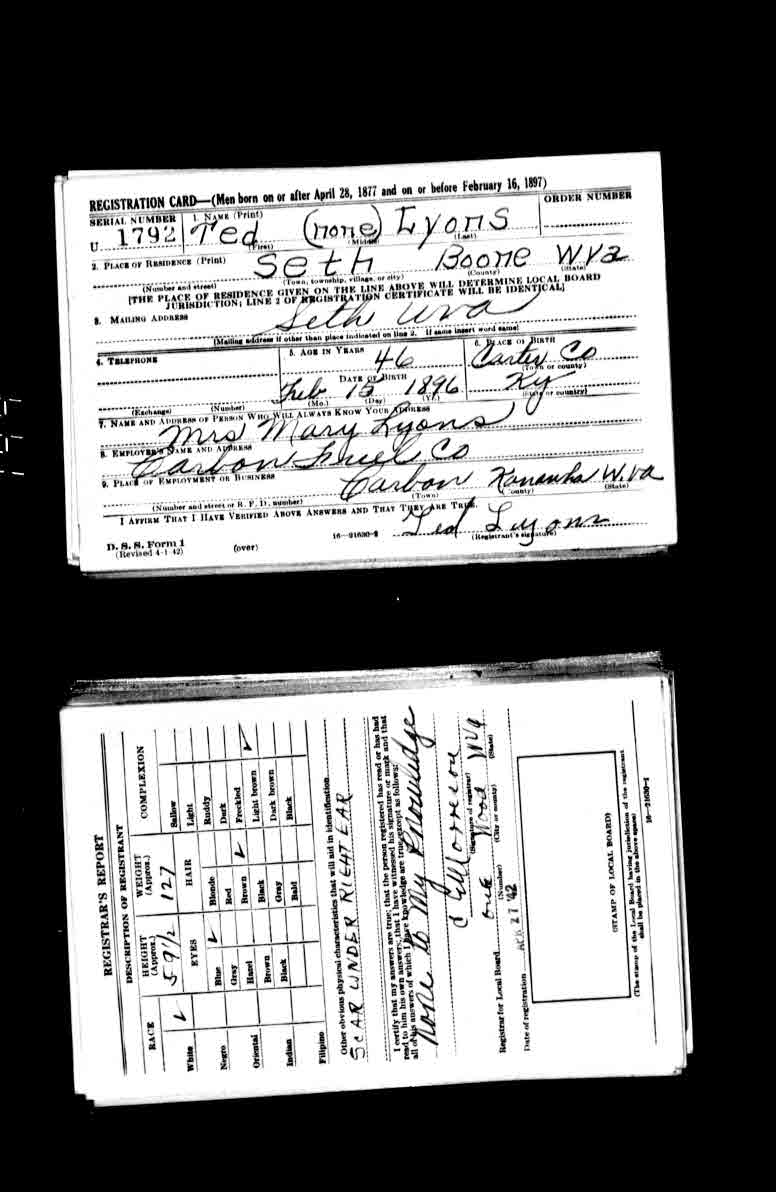 REGISTRATION CARD—(Men born on or after April 28, 1877 and on or before February 16, 1897)
SERIAL NUMBER 1. NAME (Print) ORDER NUMBER
U 1792 Ted (none) Lyons
(First) (Middle) (Last)
2. PLACE OF RESIDENCE (Print)
Seth Boone W Va
(Number and street) (Town, township, village, or city) (County) (State)
[THE PLACE OF RESIDENCE GIVEN ON THE LINE ABOVE WILL DETERMINE LOCAL BOARD
JURISDICTION; LINE 2 OF REGISTRATION CERTIFICATE WILL BE IDENTICAL]
3. MAILING ADDRESS
Seth Wva
[Mailing address if other than place indicated on line 2. If same insert word same]
4. TELEPHONE 5. AGE IN YEARS 6. PLACE OF BIRTH
46 Carter Co
DATE OF BIRTH (Town or county)
Feb 15 1896 Ky
(Exchange) (Number) (Mo.) (Day) (Yr.) (State or country)
7. NAME AND ADDRESS OF PERSON WHO WILL ALWAYS KNOW YOUR ADDRESS
Mrs Mary Lyons
8. EMPLOYER'S NAME AND ADDRESS
Carbon Fuel Co
9. PLACE OF EMPLOYMENT OR BUSINESS
Carbon Kanawha W.Va
(Number and street or R. F. D. number) (Town) (County) (State)
I AFFIRM THAT I HAVE VERIFIED ABOVE ANSWERS AND THAT THEY ARE TRUE.
Ted Lyons
D. S. S. Form 1 (over) 16—21630-2 (Registrant's signature)
(Revised 4-1-42)
REGISTRAR'S REPORT
DESCRIPTION OF REGISTRANT
RACE HEIGHT (Approx.) WEIGHT (Approx.) COMPLEXION
White ✓ 5 9 1/2 127 Sallow
EYES HAIR Light
Negro Blue ✓ Blonde Ruddy
Gray Red Dark
Oriental Hazel Brown ✓ Freckled
Brown Black Light brown ✓
Indian Black Gray Dark brown
Bald Black
Filipino
Other obvious physical characteristics that will aid in identification
SCAR UNDER RIGHT EAR
I certify that my answers are true; that the person registered has read or has had
read to him his own answers; that I have witnessed his signature or mark and that
all of his answers of which I have knowledge are true, except as follows:
None to My Knowledge
(Signature of registrar)
Registrar for Local Board one Wood WVa
(Number) (City or county) (State)
Date of registration APR 27 '42
(STAMP OF LOCAL BOARD)
(The stamp of the Local Board having jurisdiction of the registrant
shall be placed in the above space)
16—21630-1